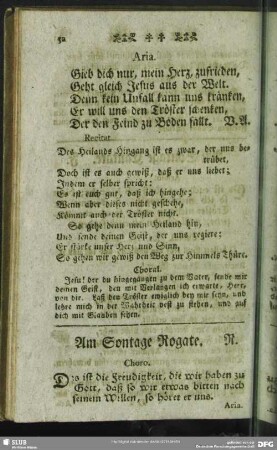 52
Aria.
Gieb dich nur, mein Herz, zufrieden,
Geht gleich Jesus aus der Welt.
Denn kein Unfall kann uns kränken,
Er will uns den Tröster schenken,
Der den Feind zu Boden fällt. V. A.
Recitat.
Des Heilands Hingang ist es zwar, der uns be-
trübet,
Doch ist es auch gewiß, daß er uns liebet;
Indem er selber spricht:
Es ist euch gut, daß ich hingehe;
Wenn aber dieses nicht geschehe,
Kömmt auch der Tröster nicht.
So gehe denn mein Heiland hin,
Und sende deinen Geist, der uns regiere;
Er stärke unser Herz und Sinn,
So gehen wir gewiß den Weg zur Himmels Thüre.
Choral.
Jesu! der du hingegangen zu dem Vater, sende mir
deinen Geist, den mit Verlangen ich erwarte, Herr,
von dir. Laß den Tröster ewiglich bey mir seyn, und
lehre mich in der Wahrheit fest zu stehen, und auf
dich mit Glauben sehen.
Am Sontage Rogate. N.
Choro.
Das ist die Freudigkeit, die wir haben zu
Gott, daß so wir etwas bitten nach
seinem Willen, so höret er uns.
Aria.
SLUB
DFG